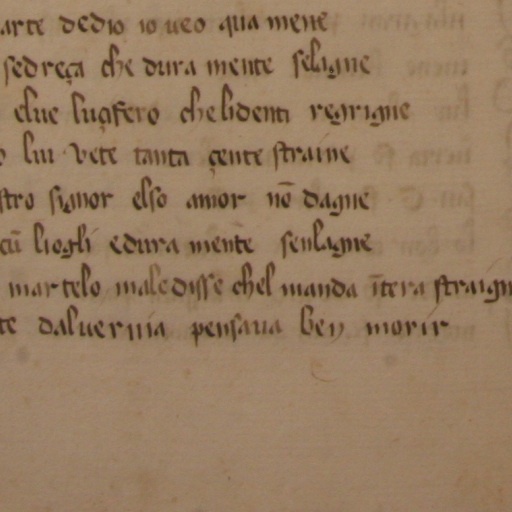 arte dedio io veo qua mene
sedreça che dura mente selagne
elue luçifero chelidenti regrigne
lui vete tanta çente straine
stro signor elso amor nō dagne
cū liogli edura mente senlagne
martelo maledisse chel manda ītera straign
te daluernia pensaua ben morir